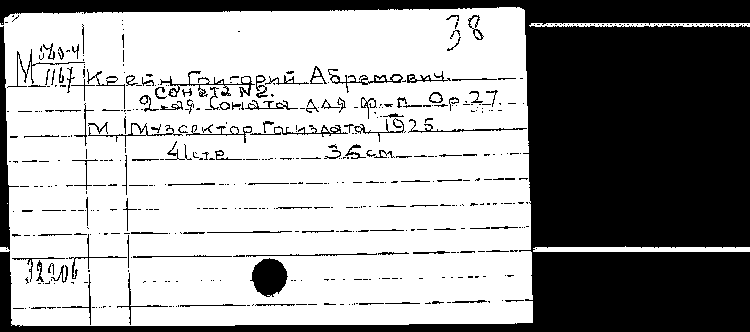 38
М 540-4
1167
Крейн Григорий Абрамович.
Соната №2.
2-ая Соната для ф-п Op.27.
М., Музсектор Госиздата, 1925.
41 стр. 35 см
32206